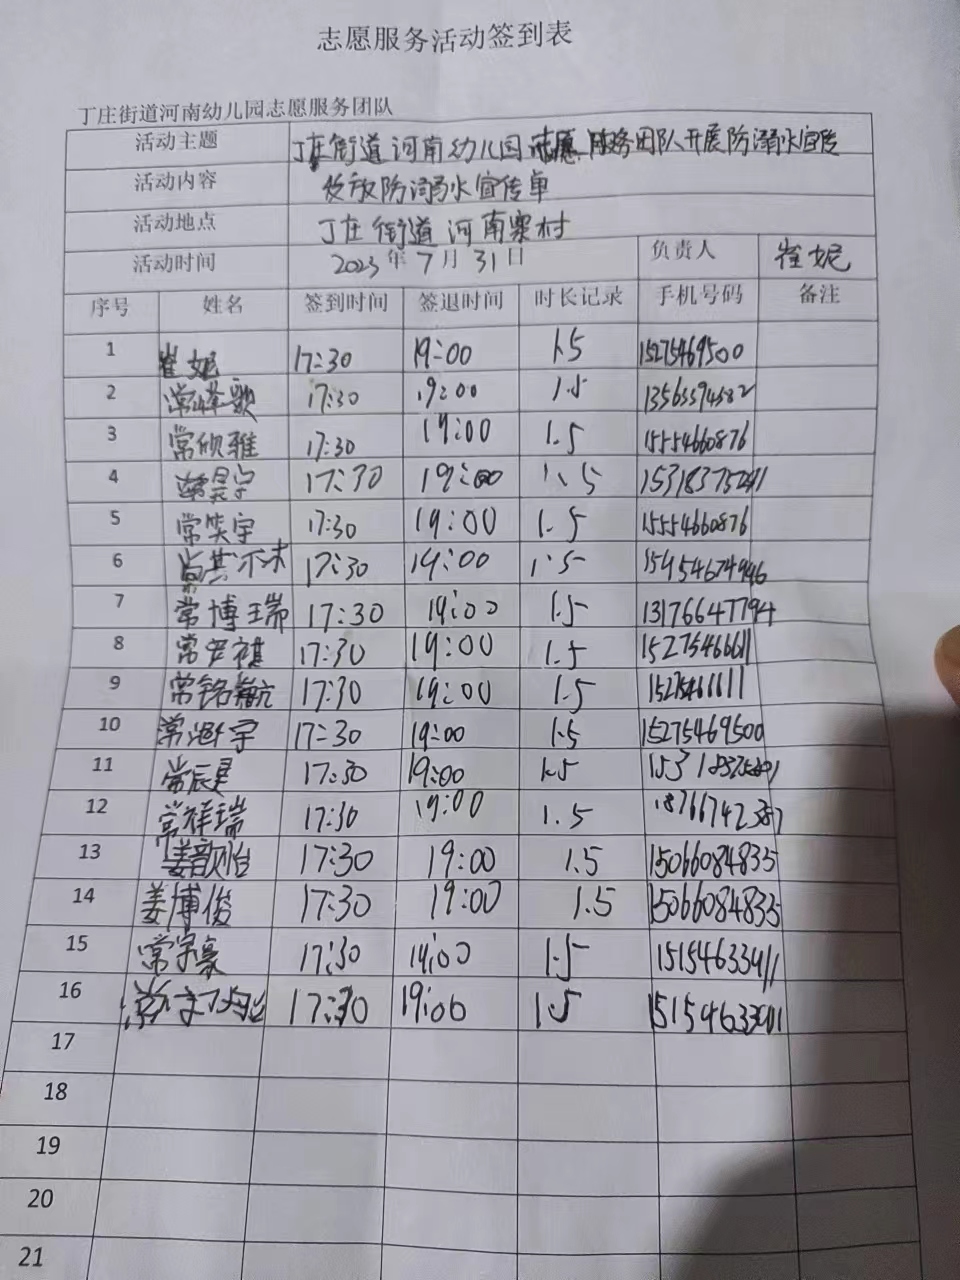 志愿服务活动签到表
丁庄街道河南幼儿园志愿服务团队
活动主题 丁庄街道河南幼儿园志愿服务团队开展防溺水宣传
活动内容 发放防溺水宣传单
活动地点 丁庄街道河南寨村
活动时间 2023年7月31日 负责人 崔妮
序号 姓名 签到时间 签退时间 时长记录 手机号码 备注
1 崔妮 17:30 19:00 1.5 15275469500
2 常峰歌 17:30 19:00 1.5
3 常欣雅 17:30 19:00 1.5 15554660876
4 常昊宇 17:30 19:00 1.5
5 常笑宇 17:30 19:00 1.5 15554660876
6 17:30 19:00 1.5
7 常博瑞 17:30 19:00 1.5 13176647794
8 常 祺 17:30 19:00 1.5 15275466611
9 常铭航 17:30 19:00 1.5
10 常 宇 17:30 19:00 1.5 15275469500
11 常辰星 17:30 19:00 1.5
12 常祥瑞 17:30 19:00 1.5 18766742387
13 姜歆怡 17:30 19:00 1.5 15066084835
14 姜博俊 17:30 19:00 1.5 15066084835
15 常宇豪 17:30 19:00 1.5
16 17:30 19:00 1.5
17
18
19
20
21